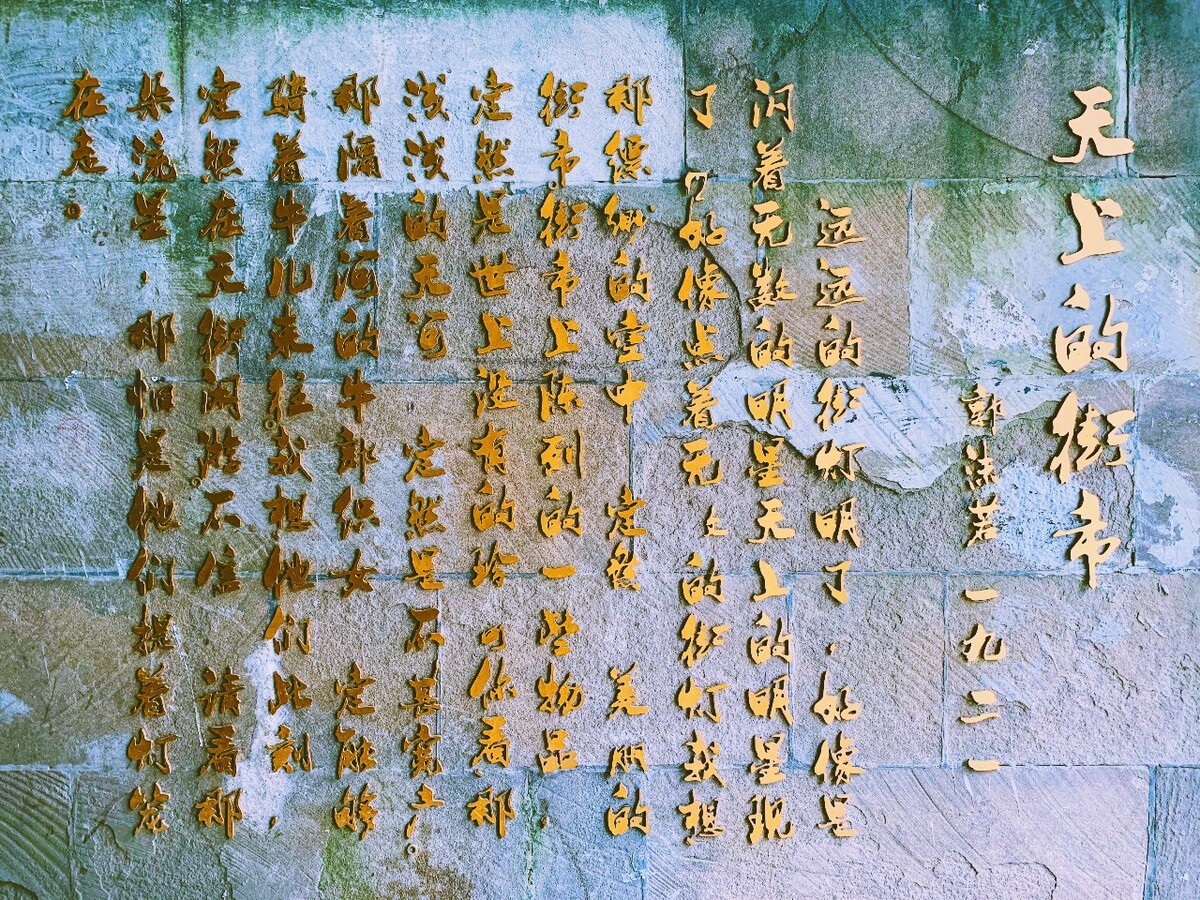 天上的街市
郭沫若 一九二一
远远的街灯明了，好像是
闪着无数的明星天上的明星现
了 好像点着无 的街灯我想
那缥缈的空中 定然 美丽的
街市。街市上陈列的一些物品，
定然是世上没有的珍 你看，那
浅浅的天河 定然是不甚宽广。
那隔着河的牛郎织女 定能够
骑着牛儿来往。我想他们此刻，
定然在天街闲游。不信 请看那
朵流星，那怕是他们提着灯笼
在走。